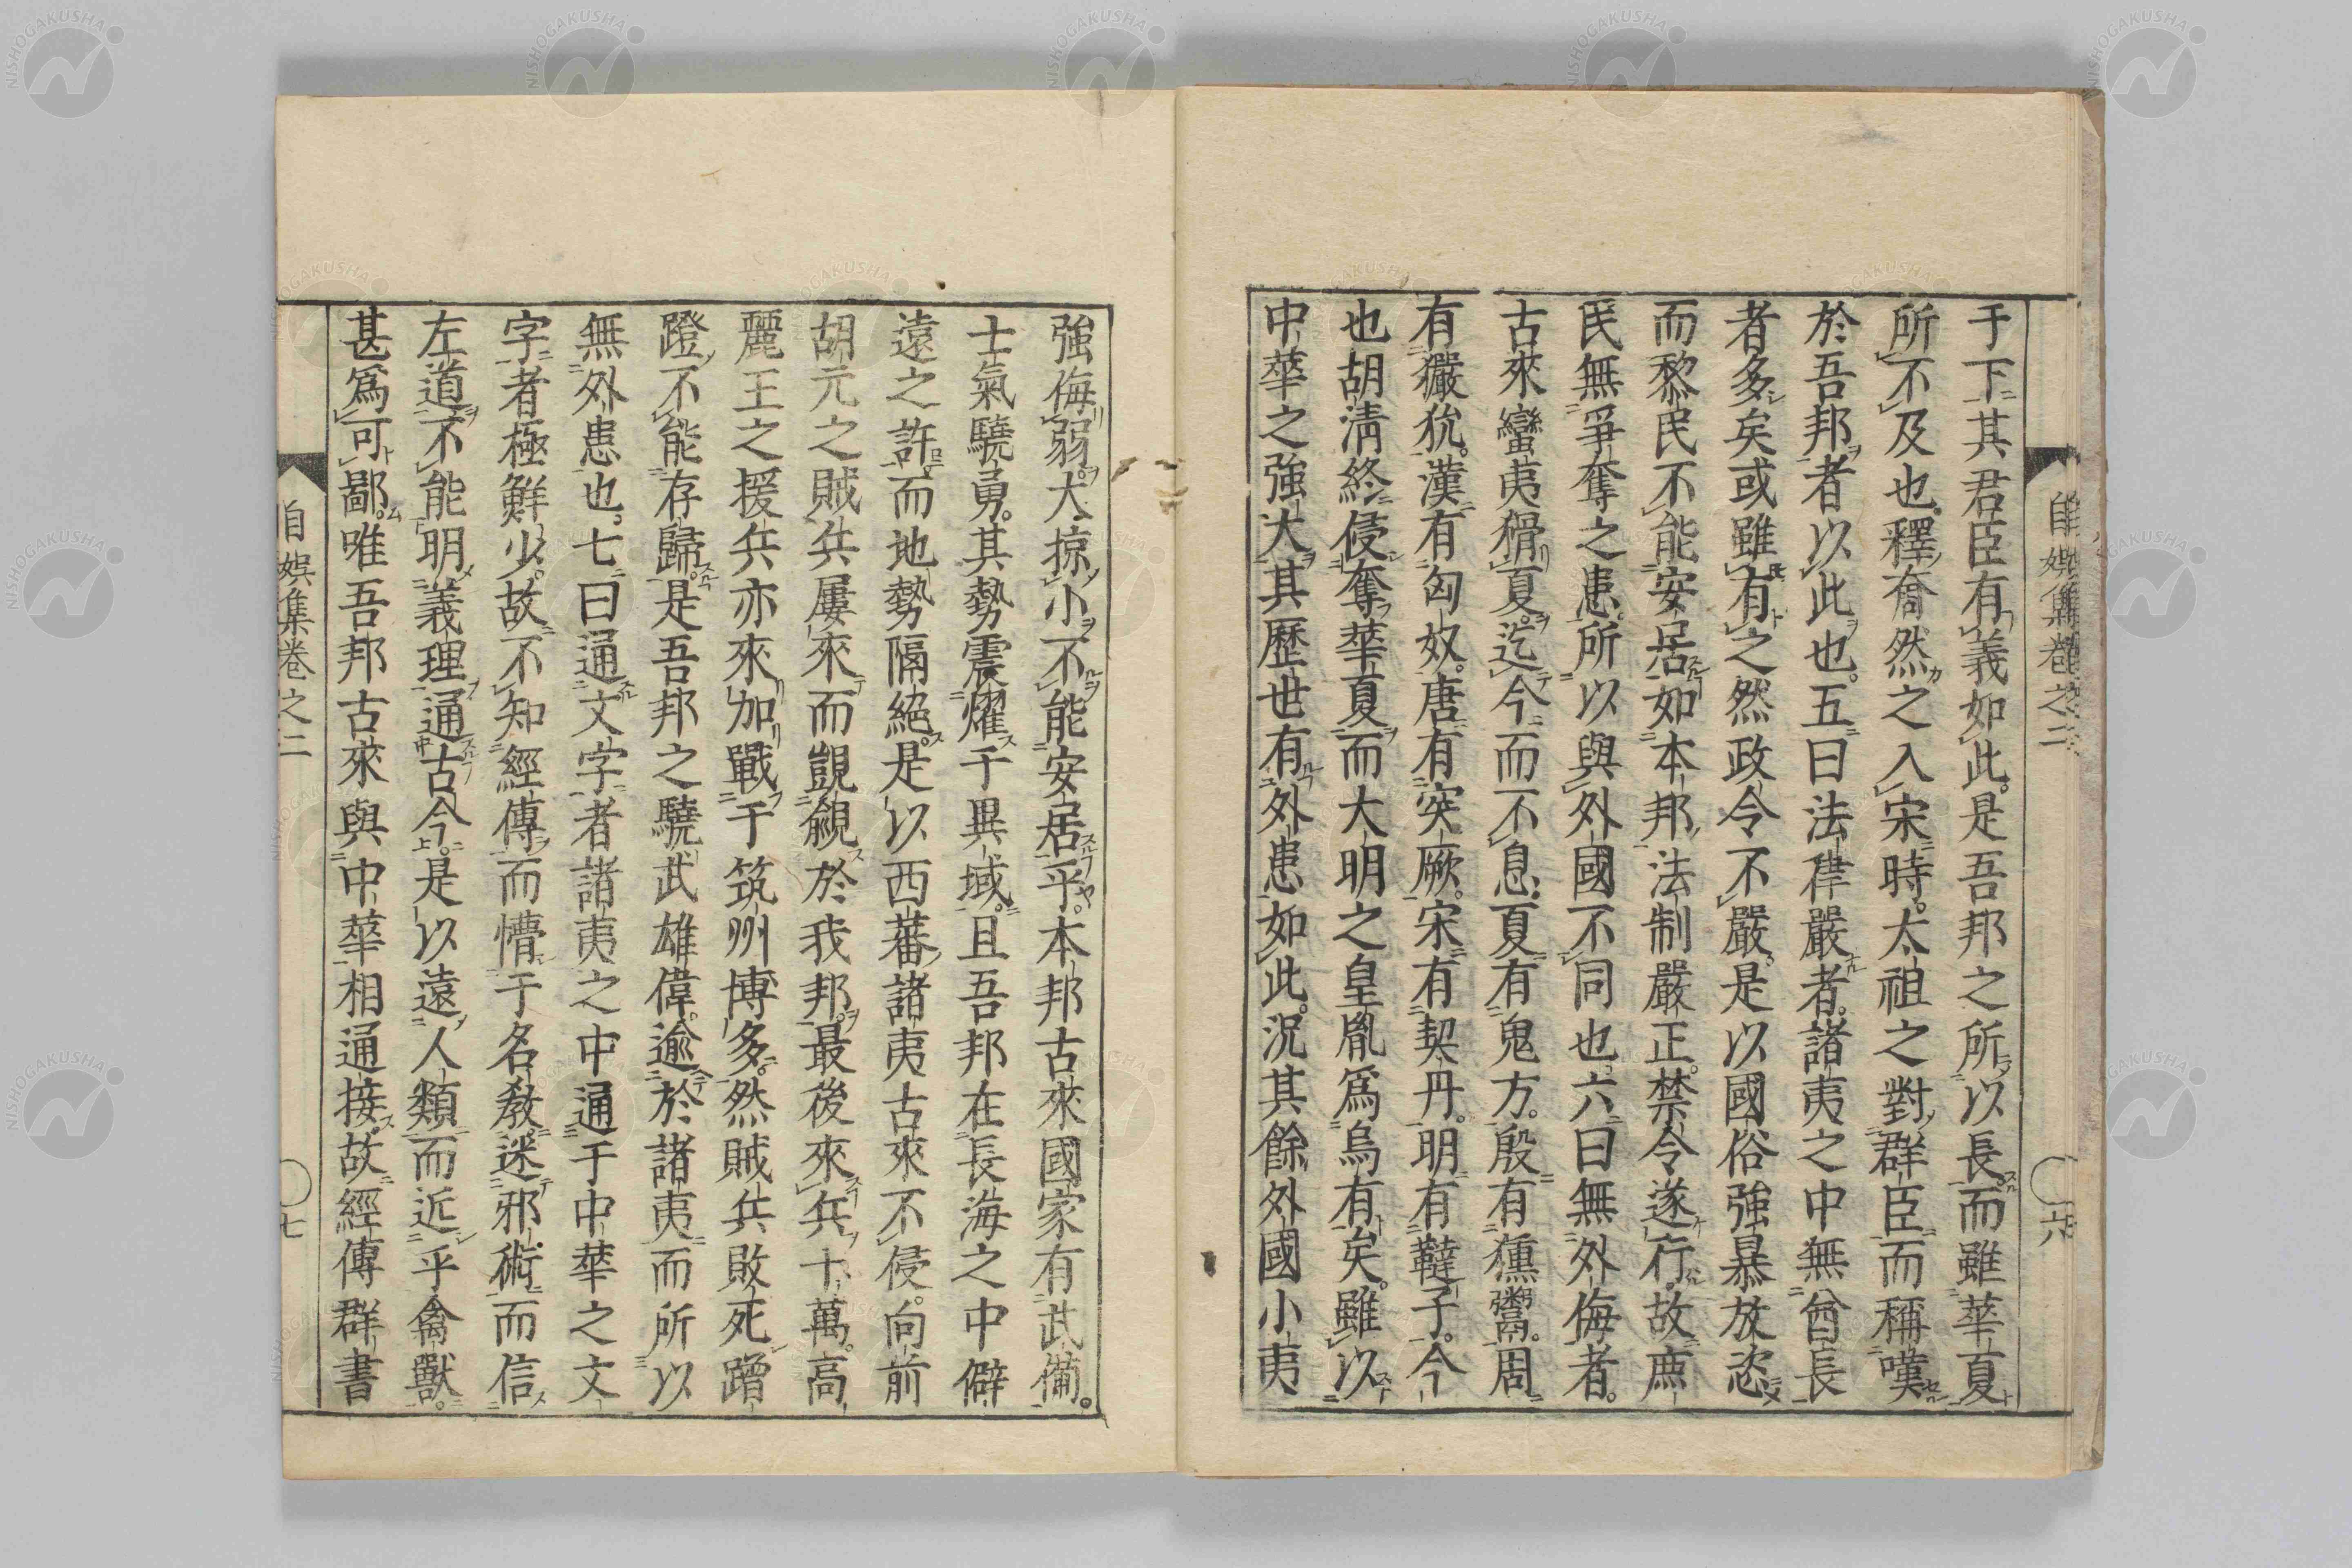 于下其君臣有義如此。是吾邦之所以長而雖華夏
所不及也。釋奝然之入宋時。太祖之對群臣而稱嘆
於吾邦者以此也。五曰法律嚴者。諸夷之中無酋長
者多矣或雖有之然政令不嚴。是以國俗強暴放恣
而黎民不能安居如本邦法制嚴正。禁令遂行。故庶
民無爭奪之患。所以與外國不同也。六曰無外侮者。
古來蠻夷猾夏。迄今而不息。夏有鬼方。殷有獯鬻。周
有玁狁。漢有匈奴。唐有突厥。宋有契丹。明有韃子。今
也胡淸終侵奪華夏而大明之皇胤爲烏有矣。雖以
中華之強大其歷世有外患如此。況其餘外國小夷
自娯集卷之二
六
強侮弱。大掠小不能安居乎。本邦古來國家有武備。
士氣驍勇。其勢震燿于異域。且吾邦在長海之中僻
遠之許而地勢隔絕。是以西蕃諸夷古來不侵。向前
胡元之賊兵屢來而覬覦於我邦。最後來兵十萬。高
麗王之援兵亦來加戰于筑州博多。然賊兵敗死蹭
蹬不能存歸。是吾邦之驍武雄偉。逾於諸夷而所以
無外患也。七曰通文字者諸夷之中通于中華之文
字者極鮮少。故不知經傳而懵于名教。迷邪術而信
左道不能明義理通古今。是以遠人類而近乎禽獸。
甚爲可鄙。唯吾邦古來與中華相通接。故經傳群書
自娯集卷之二
七
NISHOGAKUSHA